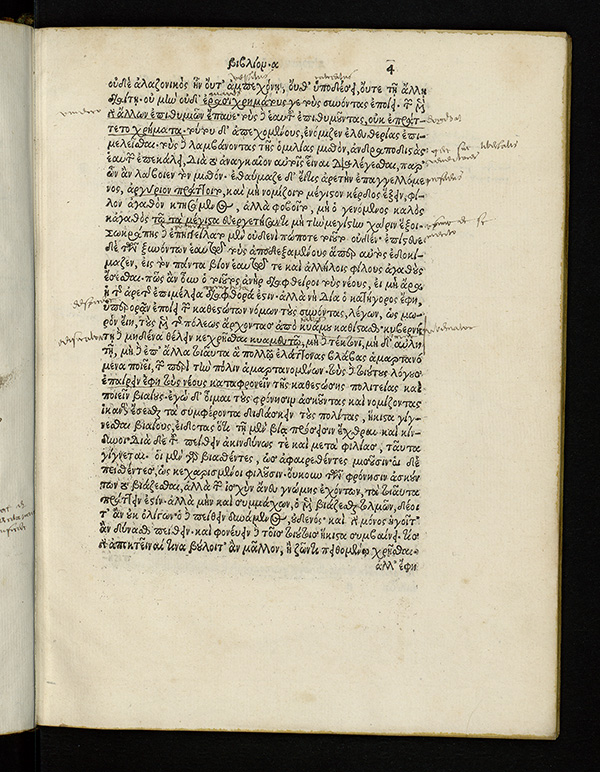 βιβλίον·α 4
οὐδὲ ἀλαζονικὸς ἦν οὔτ' ἀμπεχόνῃ, οὔθ' ὑποδέσει, οὔτε τῇ ἄλλῃ
διαίτῃ· οὐ μὴν οὐδ' ἐρασιχρημάτους γε τοὺς συνόντας ἐποίει· τῶν μὲν
γὰρ ἄλλων ἐπιθυμιῶν ἔπαυε· τοὺς δὲ ἑαυτοῦ ἐπιθυμοῦντας, οὐκ ἐπράτ-
τετο χρήματα· τούτου δ' ἀπεχομένους, ἐνόμιζεν ἐλευθερίας ἐπι-
μελεῖσθαι· τοὺς δὲ λαμβάνοντας τῆς ὁμιλίας μισθὸν, ἀνδραποδιστὰς
ἑαυτῶν ἐπεκάλει, διὰ τὸ ἀναγκαῖον αὐτοῖς εἶναι διαλέγεσθαι, παρ'
ὧν ἂν λάβοιεν τὸν μισθόν· ἐθαύμαζε δ' εἴ τις ἀρετὴν ἐπαγγελλόμε
νος, ἀργύριον πράττοιτο, καὶ μὴ νομίζοι τὸ μέγιστον κέρδος ἕξειν, φί-
λον ἀγαθὸν κτησάμενος, ἀλλὰ φοβοῖτο, μὴ ὁ γενόμενος καλὸς
κἀγαθὸς τῷ τὰ μέγιστα εὐεργετήσαντι μὴ τὴν μεγίστην χάριν ἕξοι·
Σωκράτης δὲ ἐπηγγείλατο μὲν οὐδενὶ πώποτε τοιοῦτον οὐδέν· ἐπίστευε
δὲ τῶν ξυνόντων ἑαυτῷ τοὺς ἀποδεξαμένους ἅπερ αὐτὸς ἐδοκί-
μαζεν, εἰς τὸν πάντα βίον ἑαυτῷ τε καὶ ἀλλήλοις φίλους ἀγαθοὺς
ἔσεσθαι· πῶς ἂν οὖν ὁ τοιοῦτος ἀνὴρ διαφθείροι τοὺς νέους, εἰ μὴ ἄρα
ἡ τῆς ἀρετῆς ἐπιμέλεια διαφθορά ἐστιν· ἀλλὰ νὴ Δία ὁ κατήγορος ἔφη,
ὑπερορᾶν ἐποίει τῶν καθεστώτων νόμων τοὺς συνόντας, λέγων, ὡς μω-
ρὸν εἴη, τοὺς μὲν τῆς πόλεως ἄρχοντας ἀπὸ κυάμου καθίστασθαι· κυβερνή
τῃ δὲ μηδένα θέλειν κεχρῆσθαι κυαμευτῷ, μὴ δὲ τέκτονι, μὴ δ' αὐλη
τῇ, μὴ δὲ ἐπ' ἄλλα τοιαῦτα ἃ πολλῷ ἐλάττονας βλάβας ἁμαρτανό
μενα ποιεῖ, τῶν περὶ τὴν πόλιν ἁμαρτανομένων· τοὺς δὲ τοιούτους λόγους
ἐπαίρειν ἔφη τοὺς νέους καταφρονεῖν τῆς καθεστώσης πολιτείας καὶ
ποιεῖν βιαίους· ἐγὼ δ' οἶμαι τοὺς φρόνησιν ἀσκοῦντας καὶ νομίζοντας
ἱκανοὺς ἔσεσθαι τὰ συμφέροντα διδάσκειν τοὺς πολίτας, ἥκιστα γίγ-
νεσθαι βιαίους, εἰδότας ὅτι τῇ μὲν βίᾳ πρόσεισιν ἔχθραι καὶ κίν-
δυνοι· διὰ δὲ τοῦ πείθειν ἀκινδύνως τὲ καὶ μετὰ φιλίας, ταῦτα
γίγνεται· οἱ μὲν γὰρ βιασθέντες, ὡς ἀφαιρεθέντες μισοῦσιν· οἱ δὲ
πεισθέντες, ὡς κεχαρισμένοι φιλοῦσιν· οὔκουν τῶν φρόνησιν ἀσκούν
των τὸ βιάζεσθαι, ἀλλὰ τῶν ἰσχὺν ἄνευ γνώμης ἐχόντων, τὰ τοιαῦτα
πράττειν ἐστίν· ἀλλὰ μὴν καὶ συμμάχων, ὁ μὲν βιάζεσθαι τολμῶν, δέοι
τ' ἂν οὐκ ὀλίγων· ὁ δὲ πείθειν δυνάμενος, οὐδενός· καὶ γὰρ μόνος ἡγοῖτ'
ἂν δύνασθαι πείθειν· καὶ φονεύειν δὲ τοῖς τοιούτοις ἥκιστα συμβαίνει· τίς
γὰρ ἀποκτεῖναί τινα βούλοιτ' ἂν μᾶλλον, ἢ ζῶντι πειθομένῳ χρῆσθαι·
ἀλλ' ἔφη